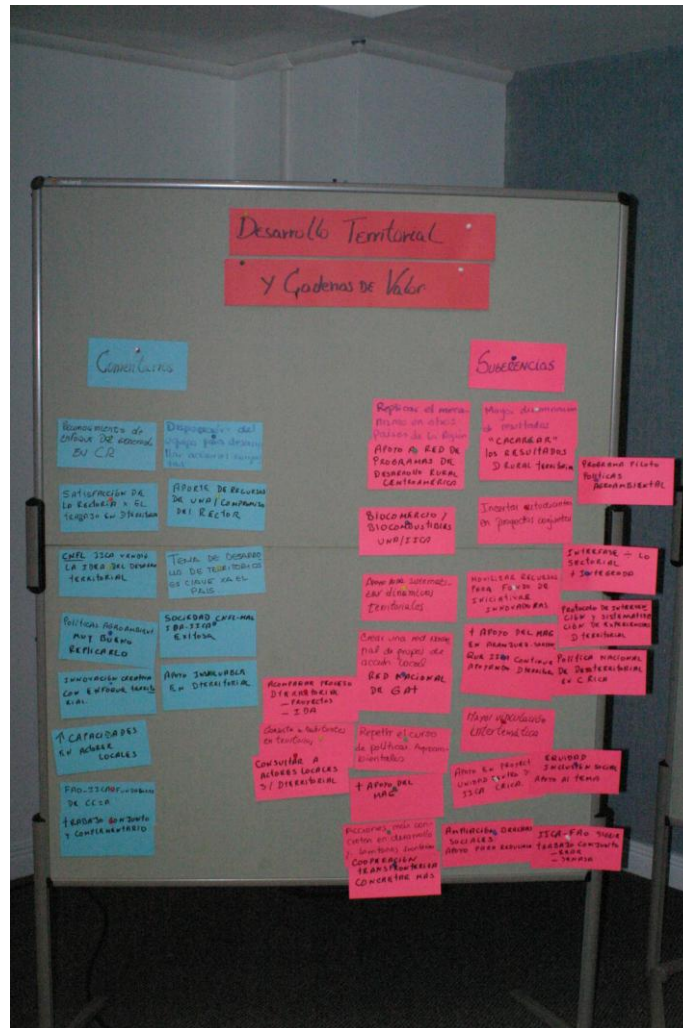 Desarrollo Territorial
y Cadenas de Valor
Comentarios
Sugerencias
Reconocimiento de
enfoque
en CR
Disposición del
equipo para
Satisfacción de
lo Rector-a x el
trabajo en
Aporte de recursos
de UNA/Compromiso
del Rector
CNFL IICA vendió
la idea del desarr
territorial
Tema de desarro
llo de territorios
es clave xa el
país
Política Agroambient
muy bueno
replicarlo
Sociedad CNFL-MAG
IDA-IICA
exitosa
Innovación
con enfoque territo
rial
Apoyo invaluable
en Dterritorial
↑ Capacidades
en actores
locales
FAO-IICA
de CECA
trabajo conjunto
y complementario
Replicar el
mismo en otros
países de la región
Apoyo a red de
programas de
desarrollo rural
Centroamérica
Mayor
de resultados
"cacarear"
los resultados
D rural territorial
Programa piloto
políticas
agroambiental
Biocomercio /
Biocombustibles
UNA/IICA
Insertar estudiantes
en proyectos conjuntos
Interfase ÷ lo
sectorial
+ integrando
sistemati
zar dinámicas
territoriales
Movilizar recursos
para fondo de
iniciativas
innovadoras
Protocolo de
ción y sistematiza
ción de experiencias
D territorial
Crear una red
nal de grupos de
acción local
Red Nacional
de GAT
+ apoyo del MAG
en
que IICA continue
apoyando
Política Nacional
de Desterritorial
en C Rica
Acompañar proceso
Dterritorial
- Proyectos
- IDA
Consulta a habitantes
en territorios
Consultar a
actores locales
s/ Dterritorial
Repetir el curso
de políticas Agroam
bientales
Mayor vinculación
intertemática
+ apoyo del
MAG
Apoyo en proyect
unidad
IICA CRica
Equidad
inclusión social
apoyo al tema
Acciones más con
cretas en desarrollo
Cooperación
transfronteriza
concretar más
Ampliación
sociales
Apoyo para
IICA-FAO
trabajo conjunto